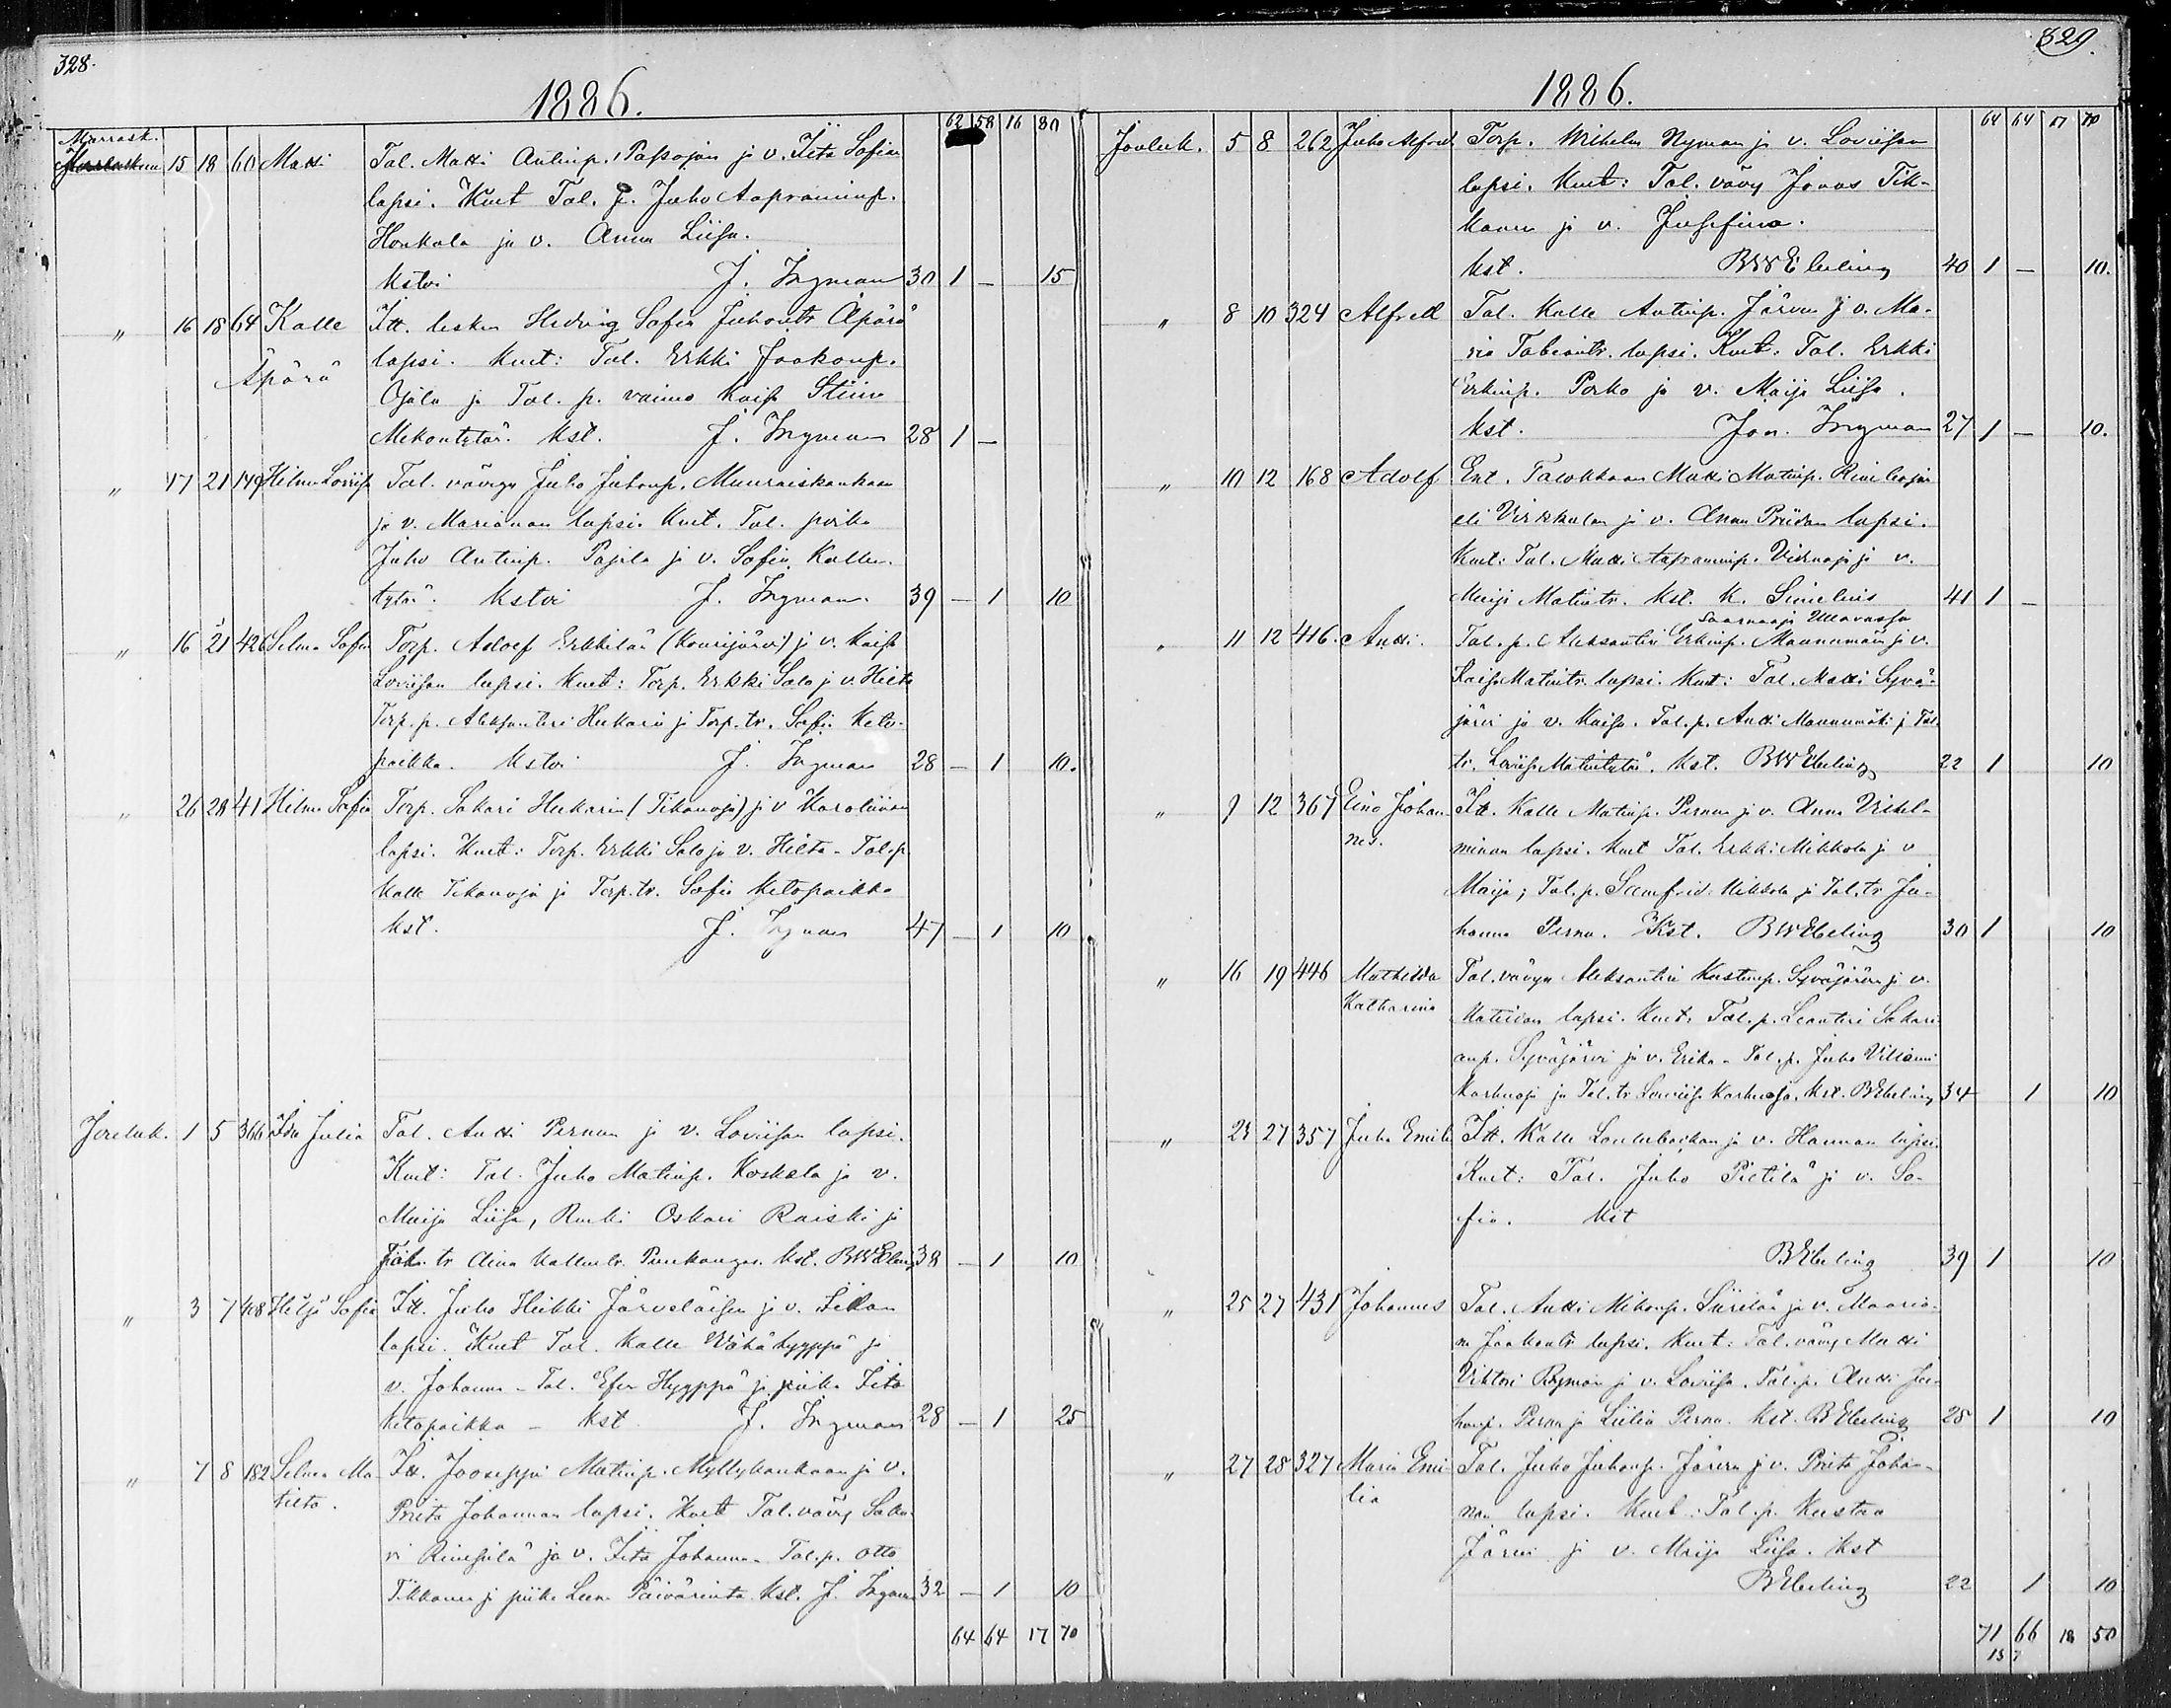 328.
1886.
62 58 16 80
Marrask.
15 18 60 Matti Tal. Matti Antinp. Passojan ja v. Iita Sofian
lapsi. Kut Tal. p. Juho Aapraminp.
Honkala ja v. Anna Liisa.
Kstoi J. Ingman 30 1 — 15
„ 16 18 64 Kalle Itt. lesken Hedvig Sofia Juhontr Äpärä
Äpärä lapsi. Kut: Tal. Erkki Jaakonp.
Ojala ja Tal. p. vaimo Kaisa Stiina
Mikontytär. Kst. J. Ingman 28 1 —
„ 17 21 149 Hilma Loviisa Tal. vävyn Juho Juhonp. Muuraiskankaan
ja v. Marianan lapsi. Kut. Tal. poika
Juho Antinp. Pajila ja v. Sofia Kallen
tytär. Kstoi J. Ingman. 39 — 1 10
„ 16 21 426 Selma Sofia Torp. Adolf Erkkilän (Kourijärvi) ja v. Kaisa
Loviisan lapsi. Kut: Torp. Erkki Salo ja v. Hilta
Torp. p. Aleksanteri Hukari ja Torp. tr. Sofia Keto-
paikka. Kstoi J. Ingman 28 — 1 10.
„ 26 28 41 Hilma Sofia Torp. Sakari Hukarin (Tikanoja) ja v Karoliinan
lapsi. Kut: Torp. Erkki Salo ja v. Hilta - Tal. p.
Kalle Tikanoja ja Torp. tr. Sofia Ketopaikka
Kst. J. Ingman 47 — 1 10
Jouluk. 1 5 366 Ida Julia Tal. Antti Pernun ja v. Loviisan lapsi.
Kut: Tal. Juho Matinp. Koskela ja v.
Maija Liisa, Renki Oskari Raiski ja
tr Aina Kallentr. Kst. 38 — 1 10
„ 3 7 Hilja Sofia Itt. Juho Heikki Järveläisen ja v. Iidan
lapsi. Kut Tal. Kalle Vähähyyppä ja
v. Johanna - Tal. Efra Hyyppä ja piika Iita
Ketopaikka - Kst J. Ingman 28 — 1 25
„ 7 8 182 Selma Ma- Itt. Jooseppi Matinp. Myllykankaan ja v.
tilta. Priita Johannan lapsi. Kut Tal. vävy Saka-
ri ja v. Iita Johanna - Tal. p. Otto
Tikkanen ja piika Leena Päivärinta Kst. J. Ingman 32 — 1 10
64 64 17 70
329.
1886.
64 64 17 70
Jouluk. 5 8 262 Juho Alfred Torp. Wilhelm Nyman ja v. Loviisan
lapsi. Kut: Tal. vävy Jonas Tik-
kanen ja v. Josefina.
Kst. BW Ebeling 40 1 — 10.
„ 8 10 324 Alfred Tal. Kalle Antinp. Järven ja v. Ma-
ria Tobiantr. lapsi. Kut: Tal. Erkki
Erkinp. Porko ja v. Maija Liisa.
Kst. Joa. Ingman 27 1 — 10.
„ 10 12 168 Adolf Ent. Talokkaan Matti Matinp.
eli Virkkalan ja v. Anna Priidan lapsi.
Kut: Tal. Matti Aapraminp. ja v.
Maija Matintr. Kst. K. Simelius 41 1 —
Saarnaaja Ullavassa
„ 11 12 416. Antti. Tal. p. Aleksanteri Erkinp. Maunumäen ja v.
Kaisa Matintr. lapsi. Kut: Tal. Matti Syvä-
järvi ja v. Kaisa. Tal. p. Antti Maunumäki ja Tal.
tr. Loviisa Matintytär. Kst. BW Ebeling 22 1 10
„ 9 12 367 Eino Johan- Itt. Kalle Matinp. Pernun ja v. Anna Vilhel-
nes. minan lapsi. Kut Tal. Erkki Mikkola ja v
Maija; Tal. p. Samfrid Mikkola ja Tal. tr Jo-
hanna Pernu. Kst. BW Ebeling 30 1 10
„ 16 19 446 Mathilda Tal. vävyn Aleksanteri Kustinp. Syväjärven ja v.
Katharina Matildan lapsi. Kut: Tal. p. Leanteri Sakari-
anp. Syväjärvi ja v. Erika - Tal. p. Juho Viliami
Karhuoja ja Tal. tr Loviisa Karhuoja. Kst. BEbeling 34 1 10
„ 27 357 Juho Emil Itt. Kalle ja v. Hannan lapsi.
Kut: Tal. Juho Pietilä ja v. So-
fia. Kst
BEbeling 39 1 10
„ 25 27 431 Johannes Tal. Antti Mikonp. Siirilän ja v. Maaria-
n Jaakontr lapsi. Kut: Tal. vävy Matti
Viktori Ryman ja v. Loviisa. Tal. p. Antti Ju-
honp. Pernu ja Liilia Pernu. Kst. BEbeling 28 1 10
„ 27 28 327 Maria Emi- Tal. Juho Juhonp. Järven ja v. Priita Johan-
lia nan lapsi. Kut: Tal. p. Kustaa
Järvi ja v. Maija Liisa. Kst
BEbeling 22 1 10
71 66 18 50
137